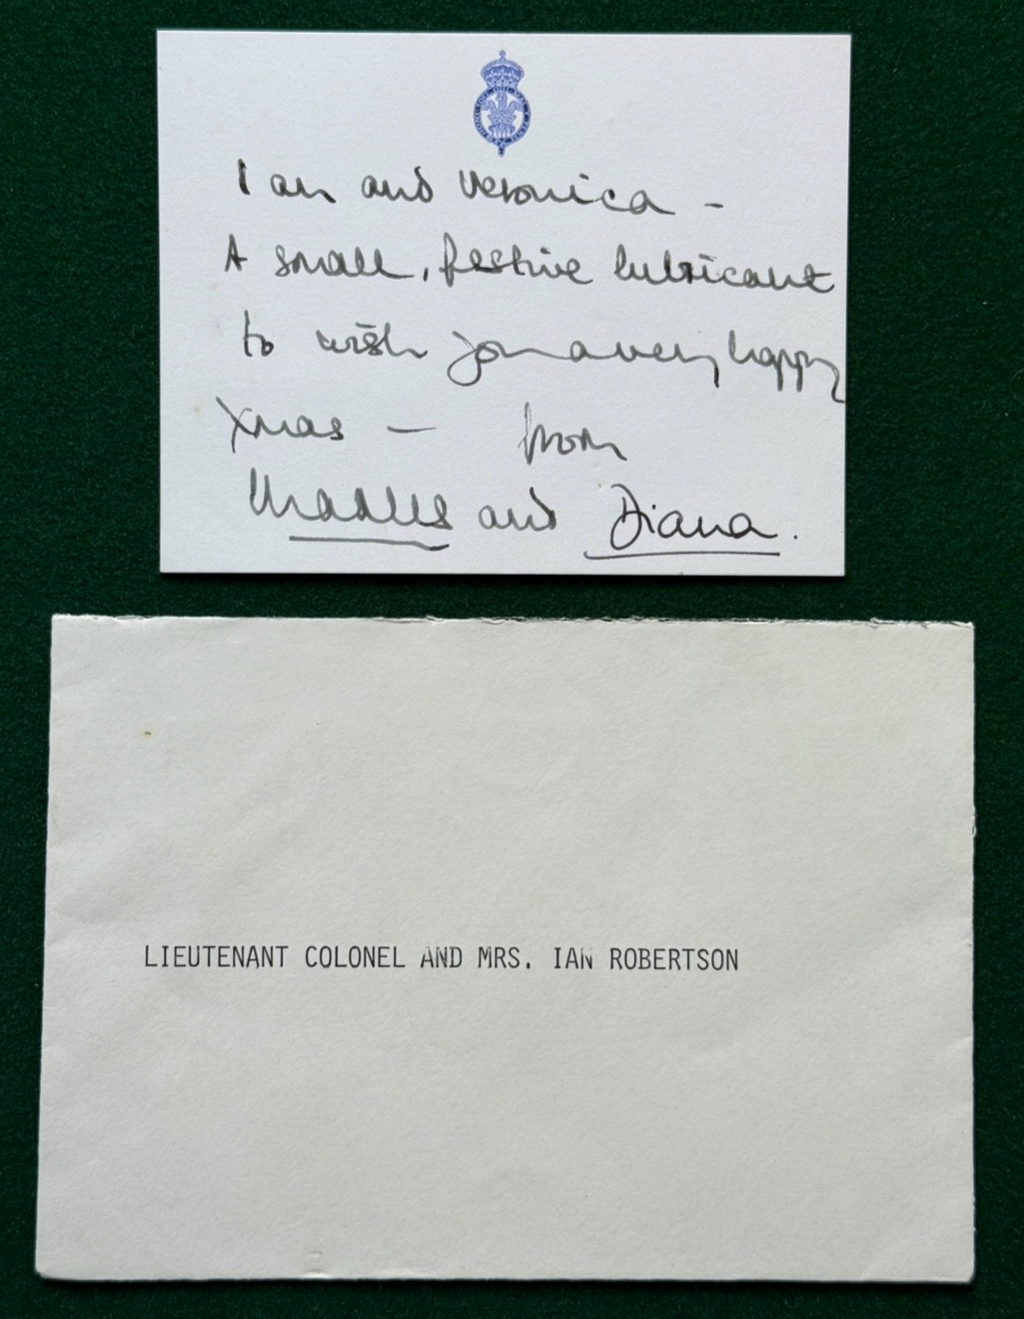 Ian and Veronica -
A small, festive lubricant
to wish you a very happy
Xmas — from
Charles and Diana.
LIEUTENANT COLONEL AND MRS. IAN ROBERTSON